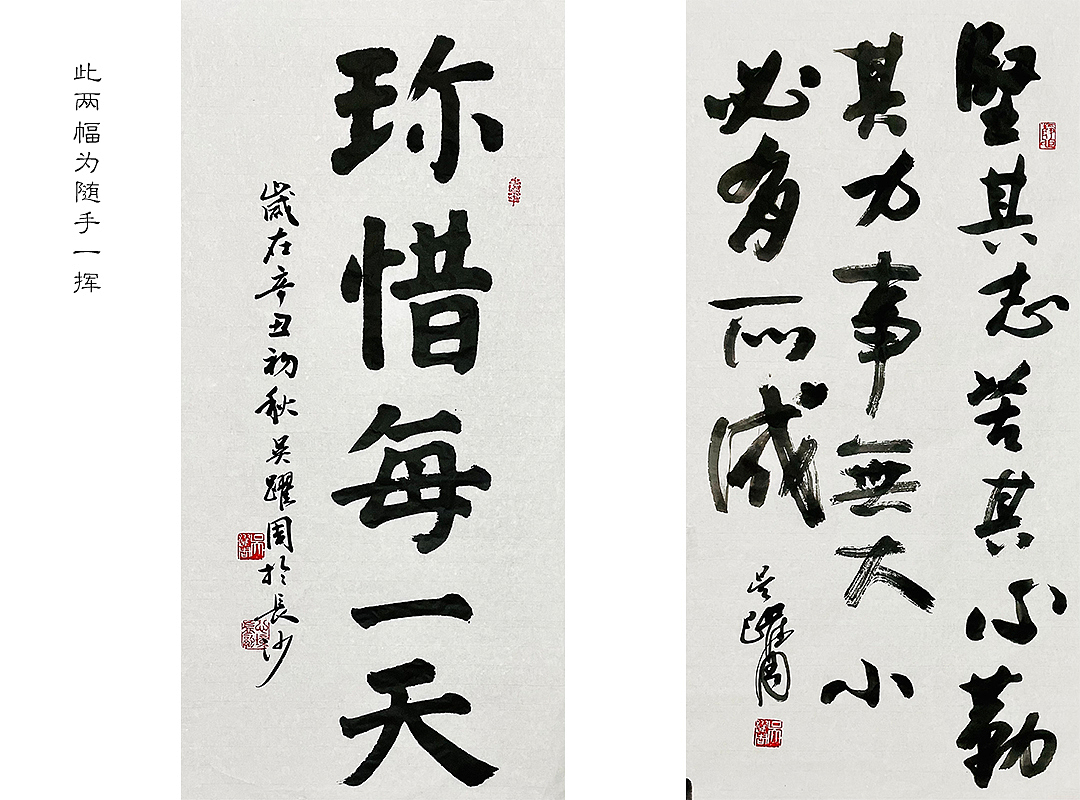 此两幅为随手一挥
珎惜每一天
歲在辛丑初秋吴躍周於長沙
堅其志苦其心勤
其力事無大小
必有所成
吴躍周